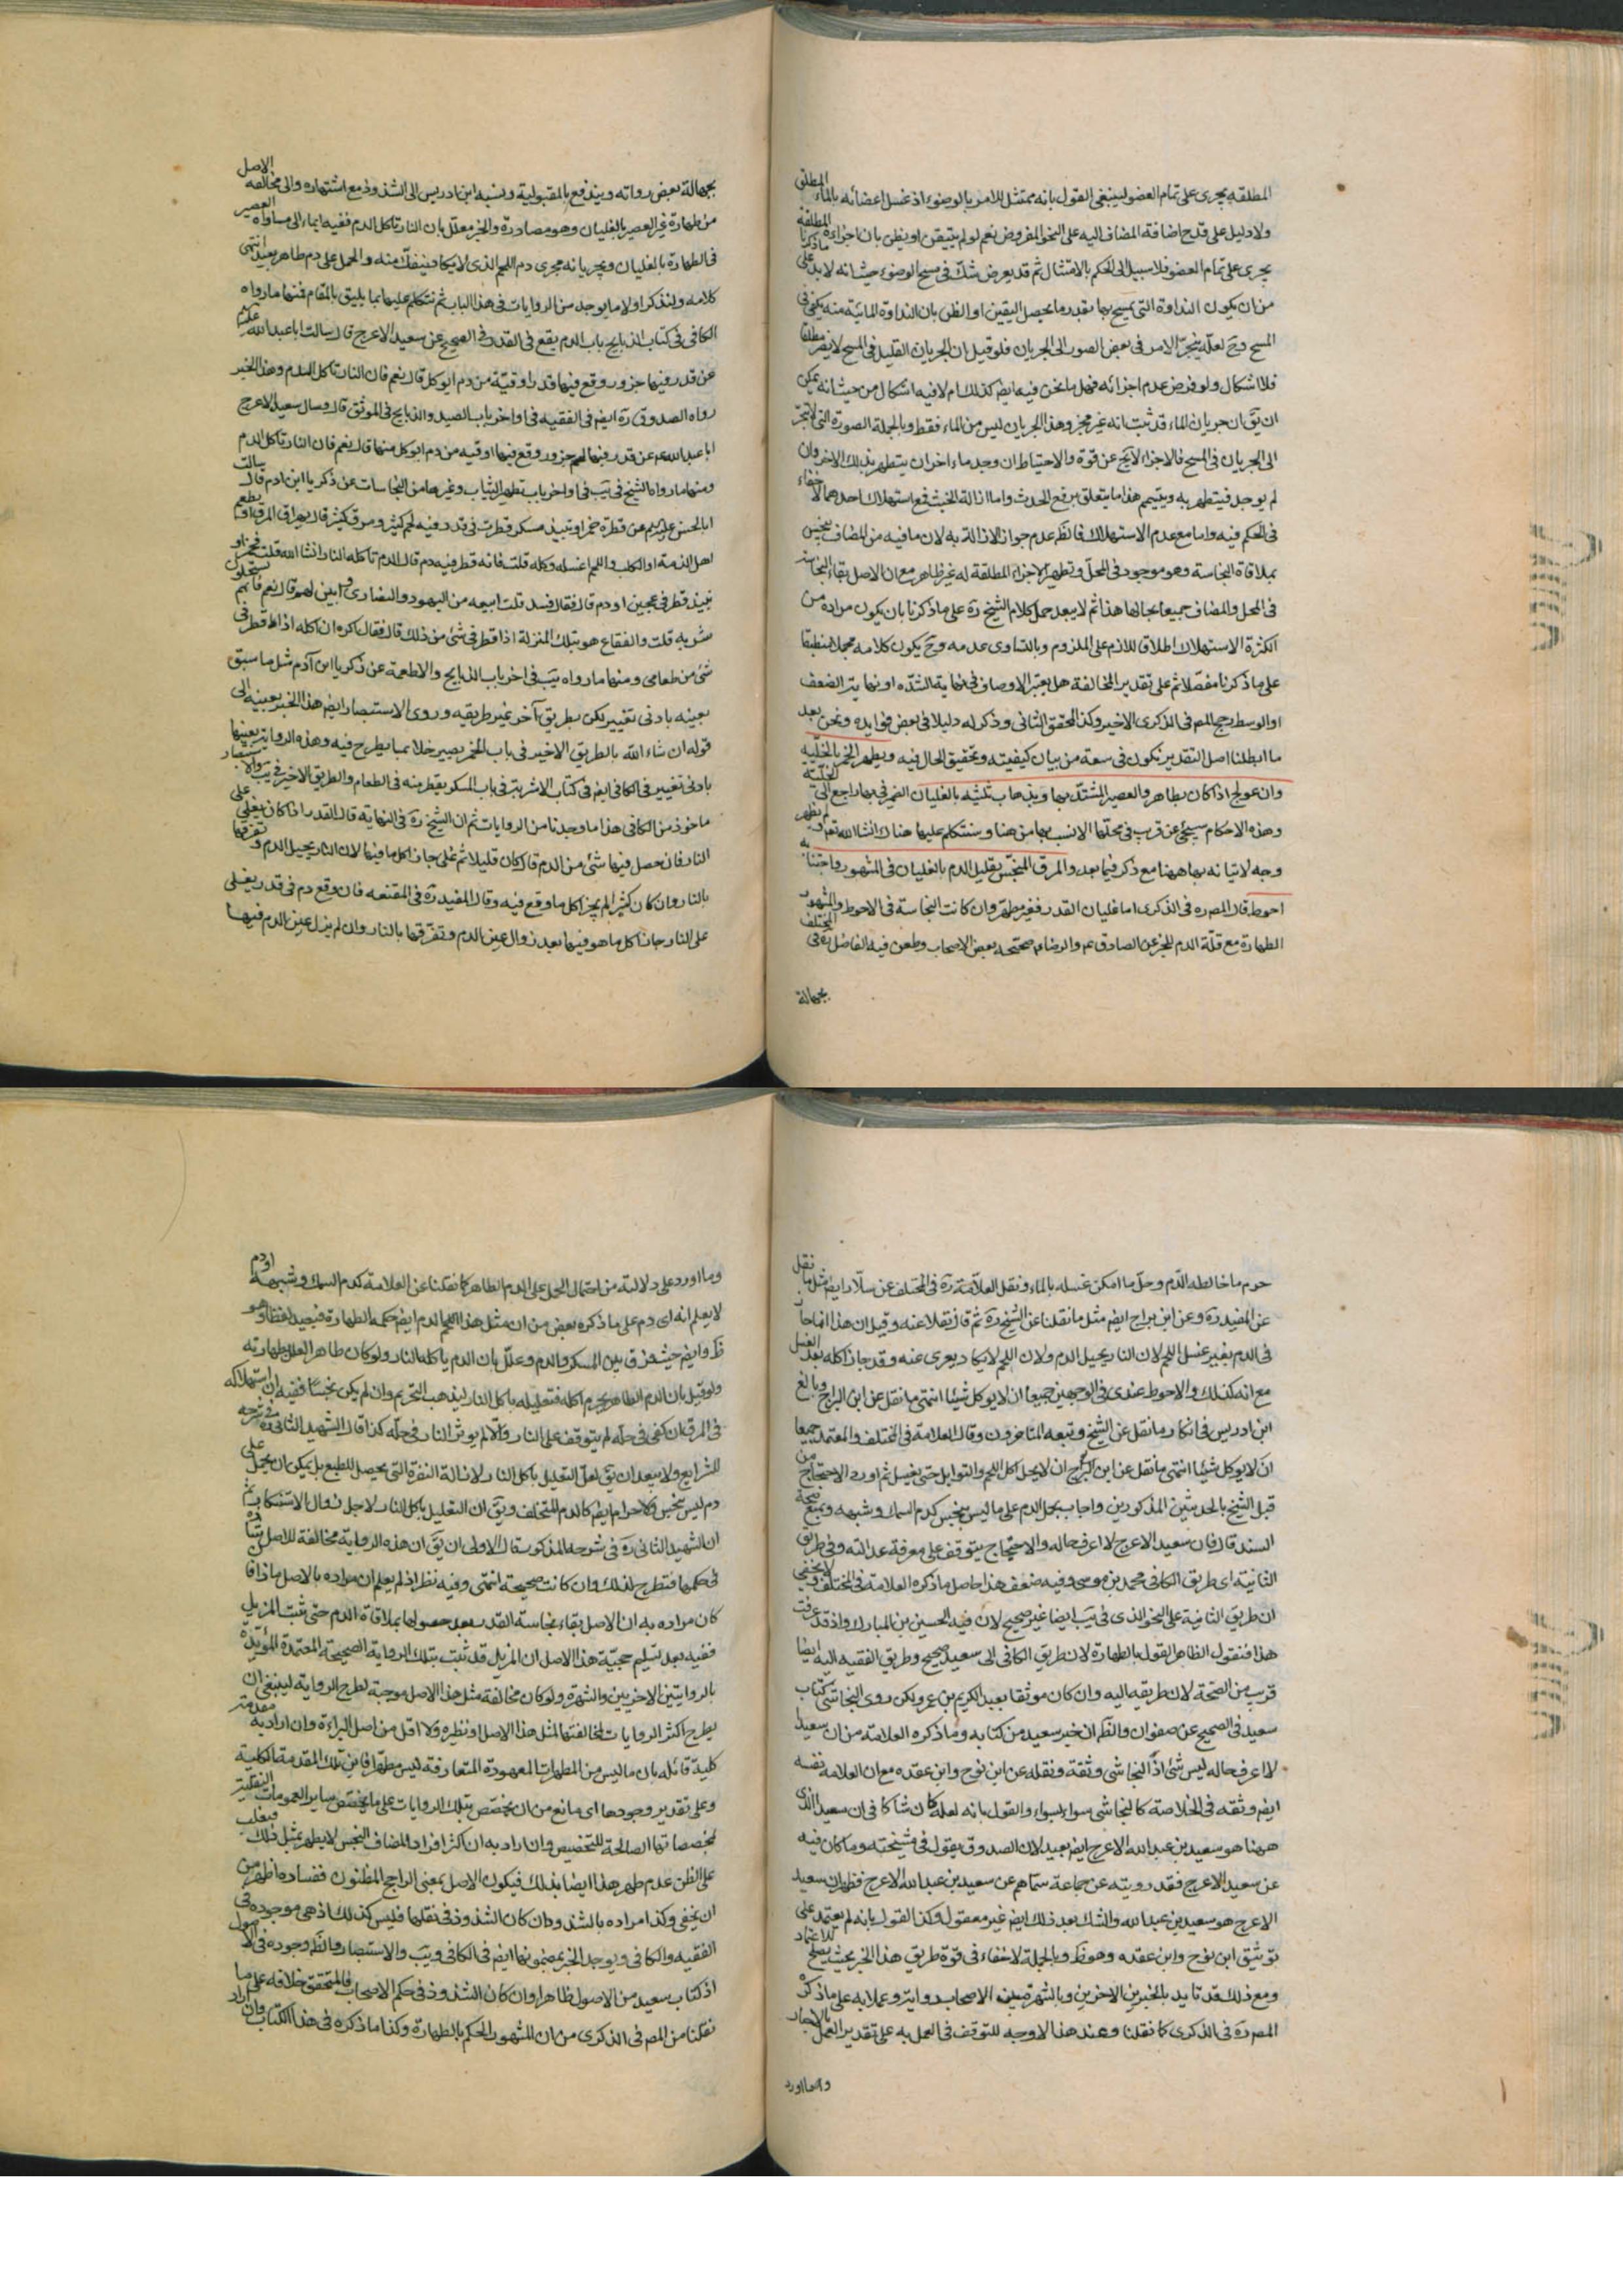 المطلقه يجرى على تمام العضو لينبغى القول بانه ممتثل للامر بالوضوء اذ غسل اعضائه بالماء المطلق
ولا دليل على قدح اضافة المضاف اليه على النحو المفروض نعم لو لم يتيقن او يظن بان اجزاءه المطلقة
يجرى على تمام العضو فلا سبيل الى الحكم بالامتثال ثم قد يعرض شك فى مسح الوضوء حيث انه لا بد على ما ذكرنا
من ان يكون النداوة التى يمسح بها بقدر ما يحصل اليقين او الظن بان النداوة المائية منه يكفى فى
المسح وح لعله ينجر الامر فى بعض الصور الى الجريان فلو قيل ان الجريان القليل فى المسح لا يضر مطلقا
فلا اشكال ولو فرض عدم اجزائه فهل ما نحن فيه ايض كذلك ام لا فيه اشكال من حيث انه يمكن
ان يق ان جريان الماء قد ثبت انه غير مجز وهذا الجريان ليس من الماء فقط وبالجملة الصورة التى لا تنجر
الى الجريان فى المسح فالاجزاء لا يخ عن قوة والاحتياط ان وجد ماء اخر ان يتطهر بذلك الاخر وان
لم يوجد فيتطهر به ويتيمم هذا ما يتعلق برفع الحدث واما ازالة الخبث فمع استهلاك احدهما لا خفاء
فى الحكم فيه واما مع عدم الاستهلاك فالظ عدم جواز الازالة به لان ما فيه من المضاف ينجس
بملاقاة النجاسة وهو موجود فى المحل وتطهير الاجزاء المطلقة له غير ظاهر مع ان الاصل بقاء النجاسة
فى المحل والمضاف جميعا بحالها هذا ثم لا يبعد حمل كلام الشيخ ره على ما ذكرنا بان يكون مراده من
الكثرة الاستهلاك اطلاق للازم على الملزوم وبالتساوى عدمه وح يكون كلامه مجملا منطبقا
على ما ذكرنا مفصلا ثم على تقدير المخالفة هل يعتبر الاوصاف فى نهاية الشده او نهاية الضعف
او الوسط رجح المص فى الذكرى الاخير وكذا المحقق الثانى وذكر له دليلا فى بعض فوايده ونحن بعد
ما ابطلنا اصل التقدير نكون فى سعة من بيان كيفيته وتحقيق الحال فيه ويطهر الخمر بالخلية
وان عولج اذا كان بطاهر والعصير المشتد بها وبذهاب ثلثيه بالغليان الضمير فى بها راجع الى الخلية
وهذه الاحكام سيجئ عن قريب فى محلها الانسب بها من هنا وسنتكلم عليها هناك انشا الله تعم ولم يظهر
وجه لاتيانه بها ههنا مع ذكره فيما بعد والمرق المنجس بقليل الدم بالغليان فى المشهور واجتنابه
احوط قال المص ره فى الذكرى اما غليان القدر فغير مطهر وان كانت النجاسة فى الاحوط والمشهور
الطهارة مع قلة الدم للخبر عن الصادق ع والرضا ع صححه بعض الاصحاب وطعن فيه الفاضل ره فى المختلف
بجهالة
بجهالة بعض رواته ويندفع بالمقبولية ونسبه ابن ادريس الى الشذوذ مع اشتهاره والى مخالفة الاصل
من طهارة غير العصير بالغليان وهو مصادرة والخبر معلل بان النار تاكل الدم ففيه ايماء الى مساواة العصير
فى الطهارة بالغليان ويجريانه مجرى دم اللحم الذى لا يكاد ينفك منه والحمل على دم طاهر بعيد انتهى
كلامه ولنذكر اولا ما يوجد من الروايات فى هذا الباب ثم نتكلم عليها بما يليق بالمقام فمنها ما رواه
الكافى فى كتاب الذبايح باب الدم يقع فى القدر فى الصحيح عن سعيد الاعرج قال سالت ابا عبد الله عليه السلم
عن قدر فيها جزور وقع فيها قدر اوقية من دم ايوكل قال نعم فان النار تاكل الدم وهذا الخبر
رواه الصدوق ره ايض فى الفقيه فى اواخر باب الصيد والذبايح فى الموثق قال وسال سعيد الاعرج
ابا عبد الله ع عن قدر فيها لحم جزور وقع فيها اوقيه من دم ايوكل منها قال نعم فان النار تاكل الدم
ومنها ما رواه الشيخ فى يب فى اواخر باب تطهير الثياب وغيرها من النجاسات عن زكريا ابن ادم قال سالت
ابا الحسن عليه السلم عن قطرة خمر او نبيذ مسكر قطرت فى قدر فيه لحم كثير ومرق كثير قال يهراق المرق او يطعم
اهل الذمة او الكلب واللحم اغسله وكله قلت فانه قطر فيه دم قال الدم تاكله النار انشا الله قلت فخمر او
نبيذ قطر فى عجين او دم قال فقال فسد قلت ابيعه من اليهود والنصارى وابين لهم قال نعم فانهم يستحلون
شربه قلت والفقاع هو بتلك المنزلة اذا قطر فى شئ من ذلك قال فقال كره ان اكله اذا قطر فى
شئ من طعامى ومنها ما رواه يب فى اخر باب الذبايح والاطعمة عن زكريا ابن آدم مثل ما سبق
بعينه بادنى تغيير لكن بطريق آخر غير طريقيه وروى الاستبصار ايض هذا الخبر بعينه الى
قوله ان شاء الله بالطريق الاخير فى باب الخمر يصير خلا بما يطرح فيه وهذه الرواية بعينها
بادنى تغيير فى الكافى ايض فى كتاب الاشربة فى باب المسكر يقطر منه فى الطعام والطريق الاخير فى يب والاستبصار
ماخوذ من الكافى هذا ما وجدنا من الروايات ثم ان الشيخ ره فى النهاية قال القدر اذا كان يغلى على
النار فان حصل فيها شئ من الدم فان كان قليلا ثم غلى جاز اكل ما فيها لان النار يحيل الدم وتفرقها
بالنار وان كان كثيرا لم يجز اكل ما وقع فيه وقال المفيد ره فى المقنعه فان وقع دم فى قدر يغلى
على النار جاز اكل ما هو فيها بعد زوال عين الدم وتفرقها بالنار وان لم يزل عين الدم فيها
حرم ما خالطه الدم وحل ما امكن غسله بالماء ونقل العلامة ره فى المختلف عن سلار ايض مثل ما نقل
عن المفيد ره وعن ابن براج ايض مثل ما نقلنا عن الشيخ ره ثم قال نقلا عنه وقيل ان هذا انما جاز
فى الدم بغير غسل اللحم لان النار يحيل الدم ولان اللحم لا يكاد يعرى عنه وقد جاز اكله بعد الغسل
مع انه كذلك والاحوط عندى فى الوجهين جميعا ان لا يوكل شيئا انتهى ما نقل عن ابن البراج وبالغ
ابن ادريس فى انكار ما نقل عن الشيخ وتبعه المتاخرون وقال العلامة فى المختلف والمعتمد جميعا
ان لا يوكل شيئا انتهى ما نقل عن ابن البراج ان لا يحل اكل اللحم والتوابل حتى يغسل ثم اورد الاحتجاج من
قبل الشيخ بالحديثين المذكورين واجاب بحمل الدم على ما ليس بنجس كدم السمك وشبهه وبمنع صحة
السند قال فان سعيد الاعرج لا اعرف حاله والاحتجاج يتوقف على معرفة عدالته وفى طريق
الثانية اى طريق الكافى محمد بن موسى وفيه ضعف هذا حاصل ما ذكره العلامة فى المختلف ولا يخفى
ان طريق الثانية على النحو الذى فى يب ايضا غير صحيح لان فيه الحسين بن المبارك واذ قد عرفت
هذا فنقول الظاهر القول بالطهارة لان طريق الكافى الى سعيد صحيح وطريق الفقيه اليه ايضا
قرب من الصحة لان طريقه اليه وان كان موثقا بعبد الكريم بن عمرو لكن روى النجاشى كتاب
سعيد فى الصحيح عن صفوان والظ ان خبر سعيد من كتابه وما ذكره العلامة من ان سعيدا
لا اعرف حاله ليس شئ اذ النجاشى وثقه ونقله عن ابن نوح وابن عقده مع ان العلامة نفسه
ايض وثقه فى الخلاصة كالنجاشى سواء بسواء والقول بانه لعله كان شاكا فى ان سعيد الذى
ههنا هو سعيد بن عبد الله الاعرج ايض بعيد لان الصدوق يقول فى مشيخته وما كان فيه
عن سعيد الاعرج فقد رويته عن جماعة سماهم عن سعيد بن عبد الله الاعرج فظهر ان سعيد
الاعرج هو سعيد بن عبد الله والشك بعد ذلك ايض غير معقول وكذا القول بانه لم يعتمد على
توثيق ابن نوح وابن عقده وهو ظ وبالجملة لا خفاء فى قوة طريق هذا الخبر بحيث يصلح للاعتماد
ومع ذلك قد تايد بالخبرين الاخرين وبالشهرة بين الاصحاب وعملا به على ما ذكره
المص ره فى الذكرى كما نقلنا وعند هذا لا وجه للتوقف فى العمل به على تقدير العمل بالاحاد
وما اورد
وما اورد على دلالته من احتمال الحمل على الدم الطاهر كما نقلنا عن العلامة كدم السمك وشبهه او دم
لا يعلم انه اى دم على ما ذكره بعض من ان مثل هذا الدم ايض حكمه الطهارة فبعيد لفظا وهو
ظ وايض حيث فرق بين المسكر والدم وعلل بان الدم ياكله النار ولو كان طاهرا لعلل بطهارته
ولو قيل بان الدم الطاهر يحرم اكله فتعليله باكل النار ليذهب التحريم وان لم يكن نجسا ففيه ان استهلاكه
فى المرق ان كفى فى حله لم يتوقف على النار والا لم يوثر النار فى حله كذا قال الشهيد الثانى ره فى شرحه
للشرايع ولا يبعد ان يق لعل التعليل باكل النار لازالة النفرة التى يحصل للطبع بل يمكن ان يحمل على
دم ليس بنجس ولا حرام ايض كالدم المتخلف ويق ان التعليل باكل النار لاجل زوال الاستنكار ثم
ان الشهيد الثانى ره فى شرحه المذكور قال الاولى ان يق ان هذه الرواية مخالفة للاصل
فى حكمها فتطرح لذلك وان كانت صحيحة انتهى وفيه نظر اذ لم يعلم ان مراده بالاصل ماذا فا
كان مراده به ان الاصل بقاء نجاسة القدر بعد حصولها بملاقاة الدم حتى يثبت المزيل
ففيه بعد تسليم حجية هذا الاصل ان المزيل قد ثبت بتلك الرواية الصحيحة المعتمدة المؤيدة
بالروايتين الاخريين والشهرة ولو كان مخالفة مثل هذا الاصل موجبة لطرح الرواية لينبغى ان
يطرح اكثر الروايات لمخالفتها لمثل هذا الاصل او نظيره ولا اقل من اصل البراءة وان اراد به مقدمة
كلية قائله بان ما ليس من المطهرات المعهودة المتعارفة ليس مطهرا فاين تلك المقدمة الكلية
وعلى تقدير وجودها اى مانع من ان يخصص بتلك الروايات على ما يخصص ساير العمومات
لمخصصاتها الصالحة للتخصيص وان اراد به ان اكثر افراد المضاف النجس لا يطهر بمثل ذلك فيغلب
على الظن عدم طهر هذا ايضا بذلك فيكون الاصل بمعنى الراجح المظنون ففساده اظهر من
ان يخفى وكذا مراده بالشذوذ ان كان الشذوذ فى نقلها فليس كذلك اذ هى موجوده فى
الفقيه والكافى ويوجد الخبر بمضمونها ايض فى الكافى ويب والاستبصار والظ وجوده فى الاصول
اذ كتاب سعيد من الاصول ظاهرا وان كان الشذوذ فى حكم الاصحاب فالمتحقق خلافه على ما
نقلنا من المص فى الذكرى من ان المشهور الحكم بالطهارة وكذا ما ذكره فى هذا الكتاب وان اراد